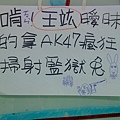 啃 王竑 曖昧
的拿AK47瘋狂
掃射監獄兔